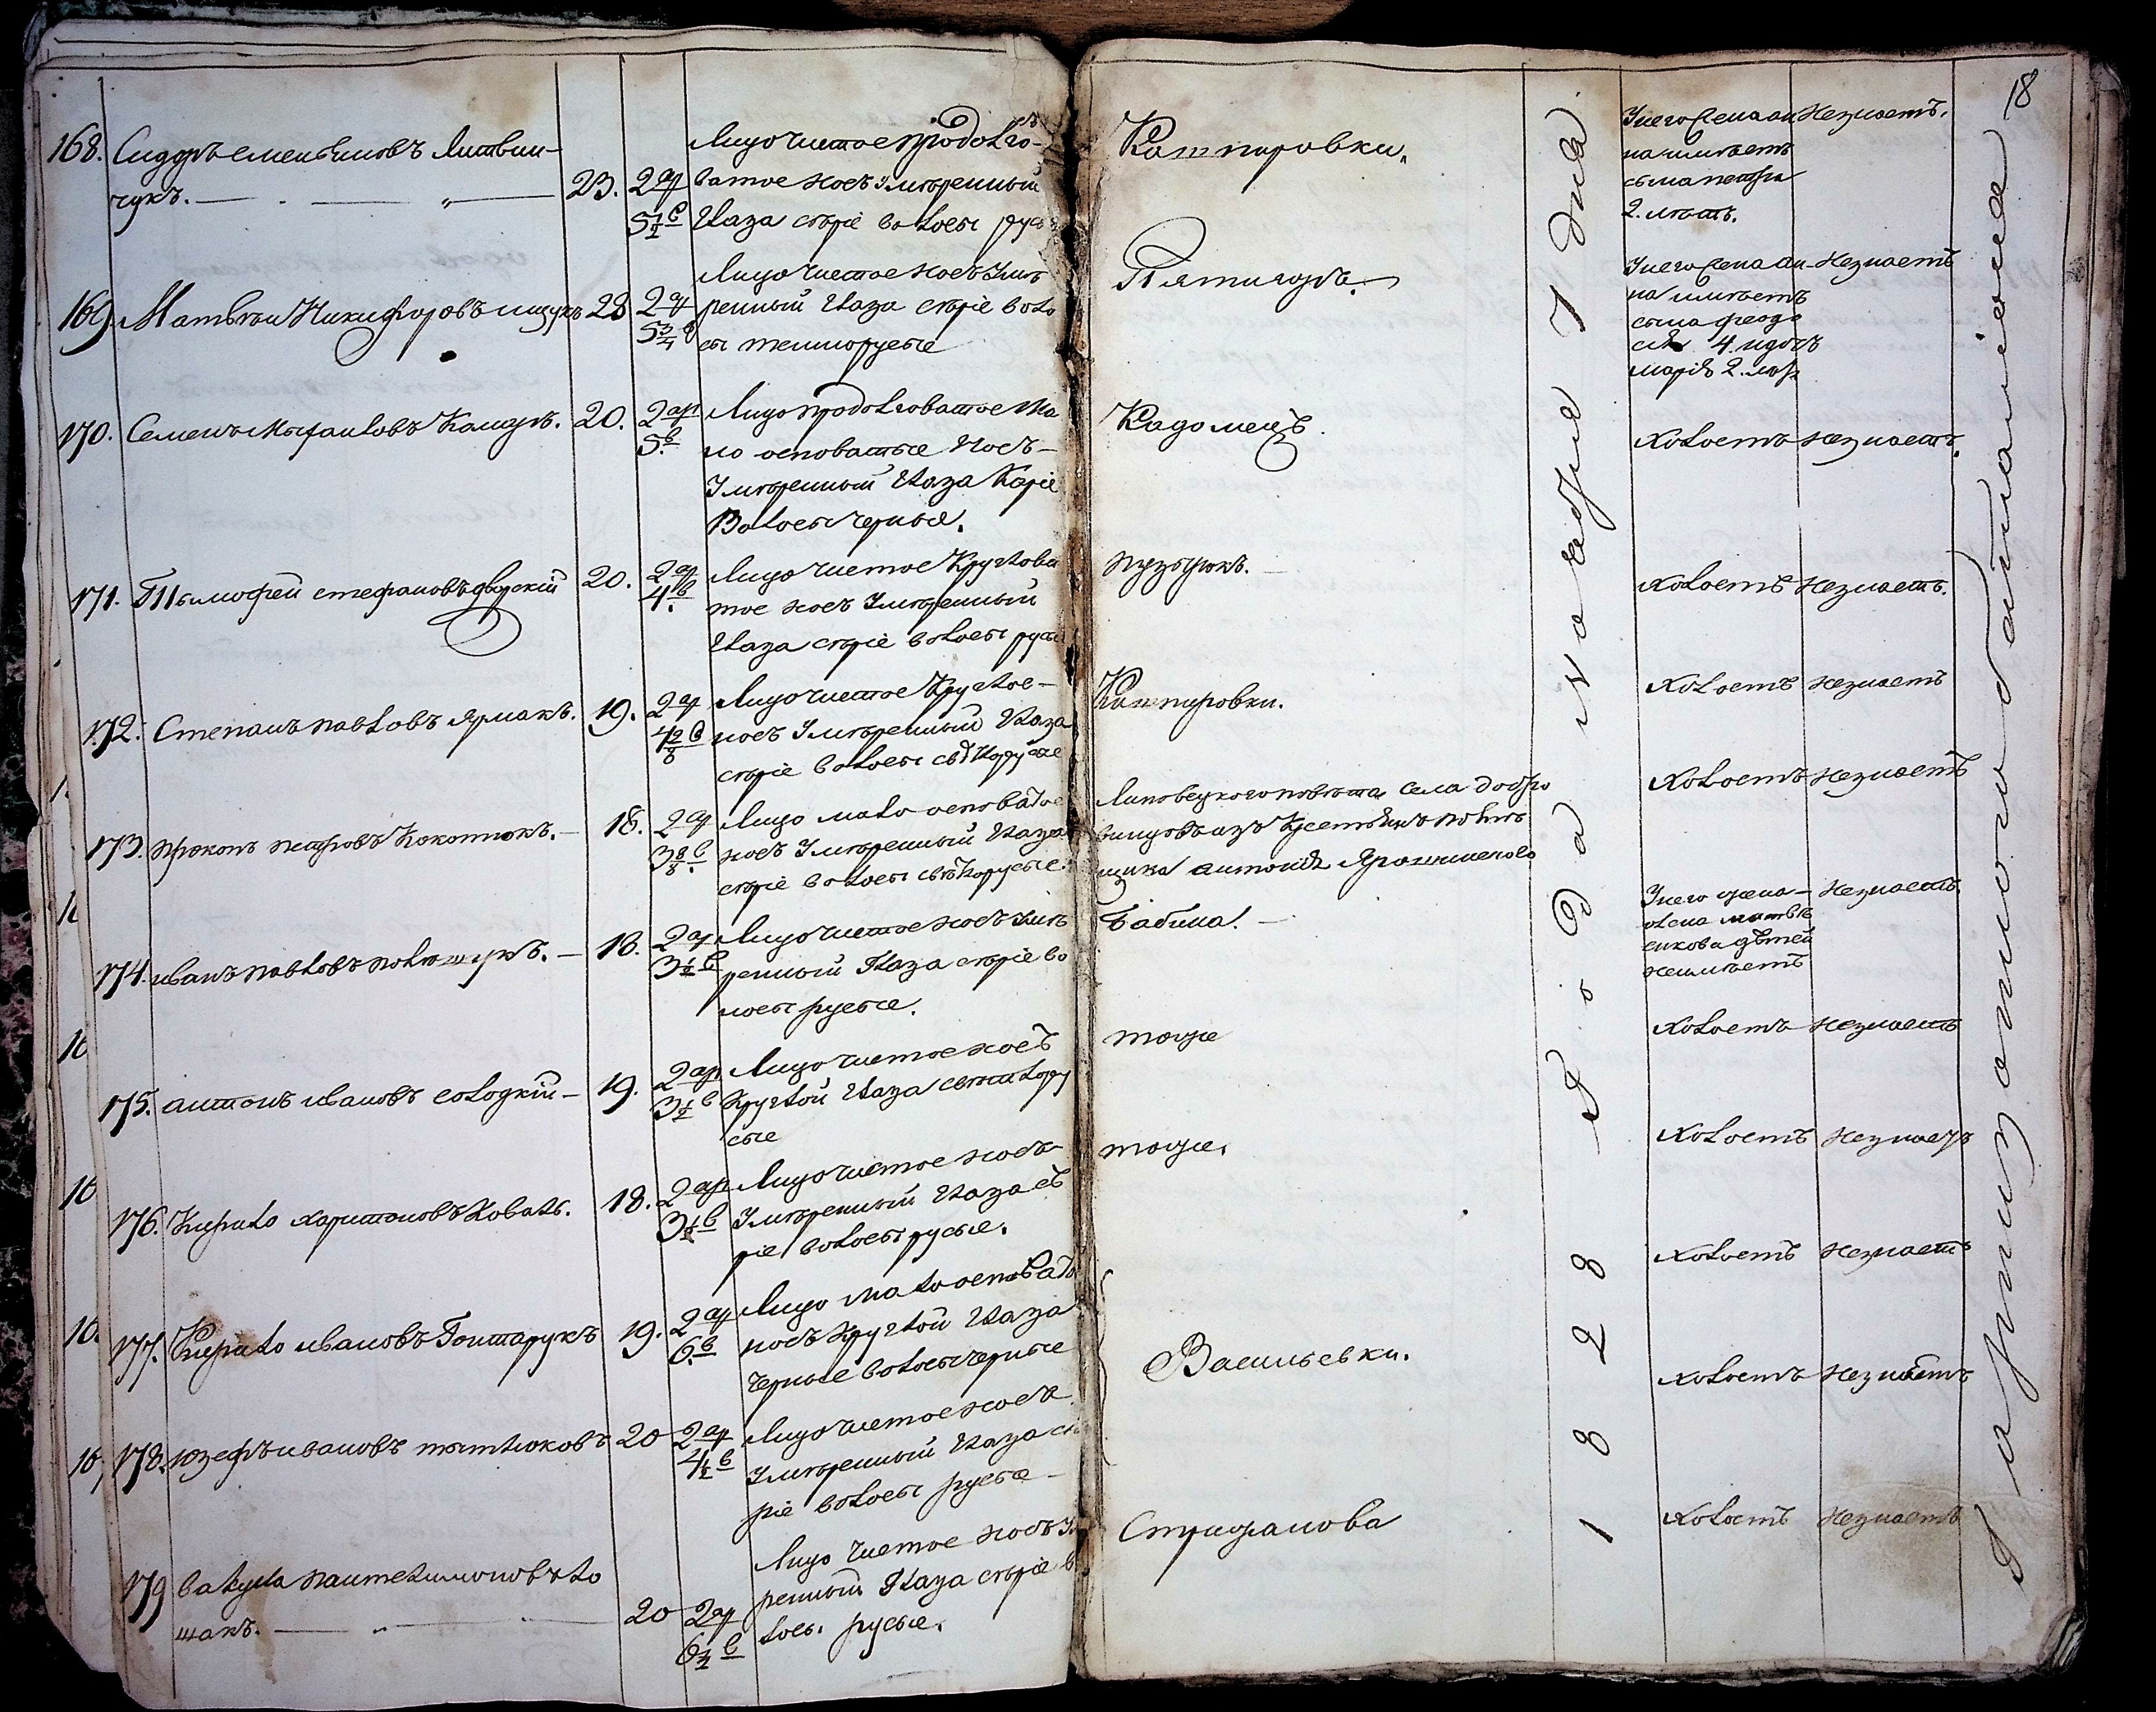 18
168. Сидоръ емельяновъ Литвин-
чукъ. 23. 2 ар 5½ в
Лицо чистое продолго-
ватое носъ Умѣренный
Глаза сѣріе волосы русы
Каштировки.
У него жена ан
на имѣетъ
сына петра
2. лѣтъ.
Незнаетъ.
169. Матвѣи Никифоровъ ищукъ 28 2 ар 5¾ в
Лицо чистое носъ Умѣ
ренный Глаза сѣріе воло
сы темнорусые
Пятигоръ.
У него жена ан-
на имѣетъ
сына феодо
сія 4. и дочь
марія 2. лѣт
Незнаетъ
170. Семенъ Михаиловъ Кашуль. 20. 2 ар 5. в
Лицо продолговатое Ма
ло осповатые Носъ-
Умѣренный Глаза Каріе
Волосы черные.
Кадомецъ.
Холостъ Незнаетъ.
171. Тимофей стефановъ дворскій 20. 2 ар 4. в
Лицо чистое Круглова
тое носъ Умѣренный
Глаза сѣріе волосы русы
пузырокъ.
Холостъ Незнаетъ.
172. Степанъ павловъ Ярмакъ. 19. 2 ар 4 2/8 в
Лицо чистое Круглое-
носъ Умѣренный Глаза
сѣріе волосы свѣтлорусые
Каштировки.
Холостъ незнаетъ
173. прокопъ петровъ Кокотюкъ. 18. 2 ар
Лицо мало осповатое
носъ Умѣренный Глаза
сѣріе волосы свѣтлорусые.
Липовецкого повѣта села добро
винцовъ изъ Крестьянъ помѣ
щика антонія Ярошинского
Холостъ незнаетъ
174. иванъ павловъ полющукъ. 18. 2 ар 3½ в
Лицо чистое носъ Умѣ
ренный Глаза сѣріе во
лосы русые.
Бабина.
У него жена-
олена матвѣ
енкова дѣтей
неимѣетъ
незнаетъ
175. антонъ ивановъ солодкій 19. 2 ар 3½ в
Лицо чистое носъ
Круглой Глаза свѣтлору
сые
тоже
Холостъ незнаетъ
176. Кирило харитоновъ Коваль. 18. 2 ар 3½ в
Лицо чистое носъ
Умѣренный Глаза сѣ
ріе волосы русые.
тоже.
Холостъ незнаетъ
177. Кирило ивановъ Гонтарукъ 19. 2 ар 6. в
Лицо мало осповато
носъ Круглой Глаза
черные волосы черные
Васильевки.
Холостъ незнаетъ
178. юзефъ ивановъ 20 2 ар 4½ в
Лицо чистое носъ
Умѣренный Глаза сѣ
ріе волосы русые
Холостъ незнаетъ
179 вакула пантелимоновъ ло
шакъ. 20 2 ар 6½ в
Лицо чистое носъ У
ренный Глаза сѣріе в
лосы русые.
Стрижакова
Холостъ незнаетъ
1828 года ноября 7 дня